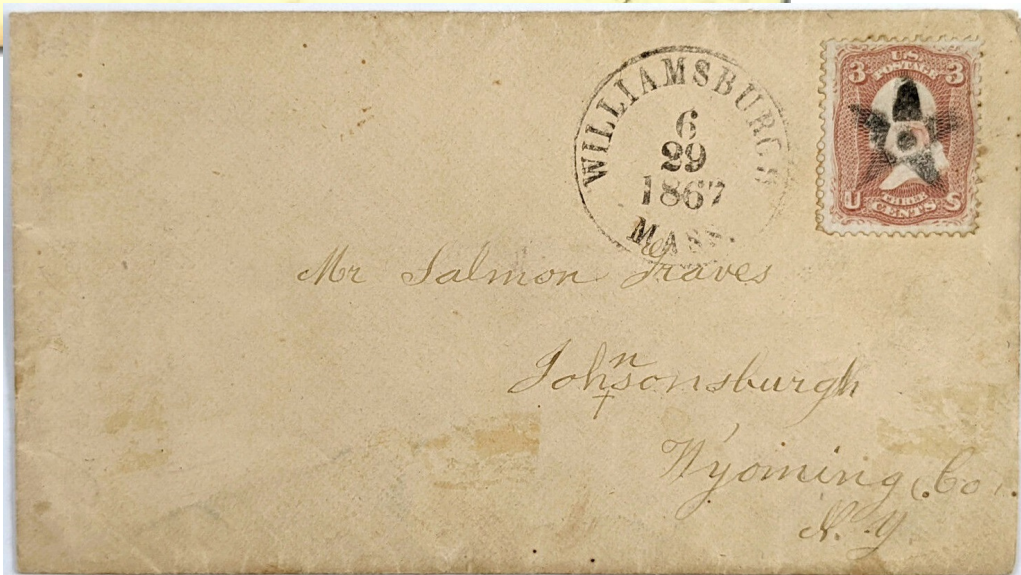 WILLIAMSBURGH
6
29
1867
MASS.
U.S.
POSTAGE
3 3
U THREE S
CENTS
Mr Salmon Graves
Johnsonsburgh
Wyoming Co.
N. Y